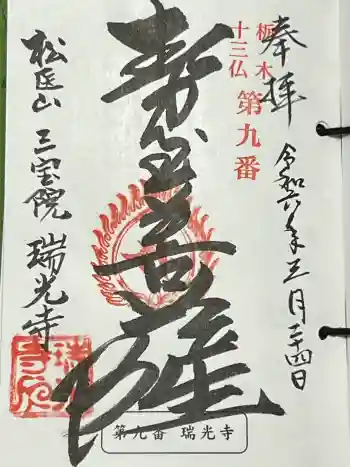 奉拝
令和六年三月二十四日
栃木
十三仏
第九番
勢至菩薩
三宝院 瑞光寺
第九番 瑞光寺